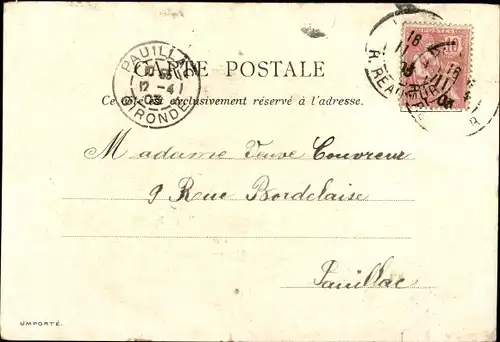 CARTE POSTALE
Ce côté est exclusivement réservé à l'adresse.
PAUILLAC
12 -4
03
GIRONDE
POSTES
10
R. REAUMUR
Madame Veuve Couvreur
9 Rue Bordelaise
Pauillac
IMPORTÉ.